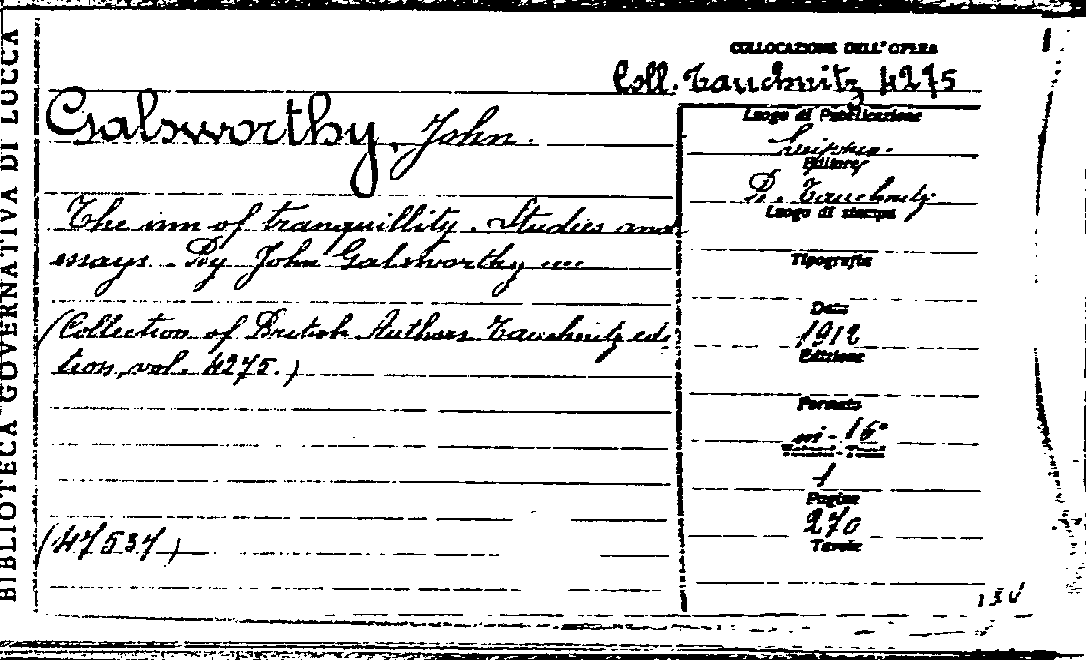 BIBLIOTECA GOVERNATIVA DI LUCCA
COLLOCAZIONE DELL'OPERA
Coll. Tauchnitz 4275
Galsworthy, John.
The inn of tranquillity. Studies and
essays. By John Galsworthy ....
(Collection of British Authors Tauchnitz edi-
tion, vol. 4275.)
(47537)
Luogo di Pubblicazione
Editore
B. Tauchnitz
Luogo di stampa
Tipografia
Data
1912
Edizione
Formato
in-16°
Volumi - Tomi
1
Pagine
270
Tavole